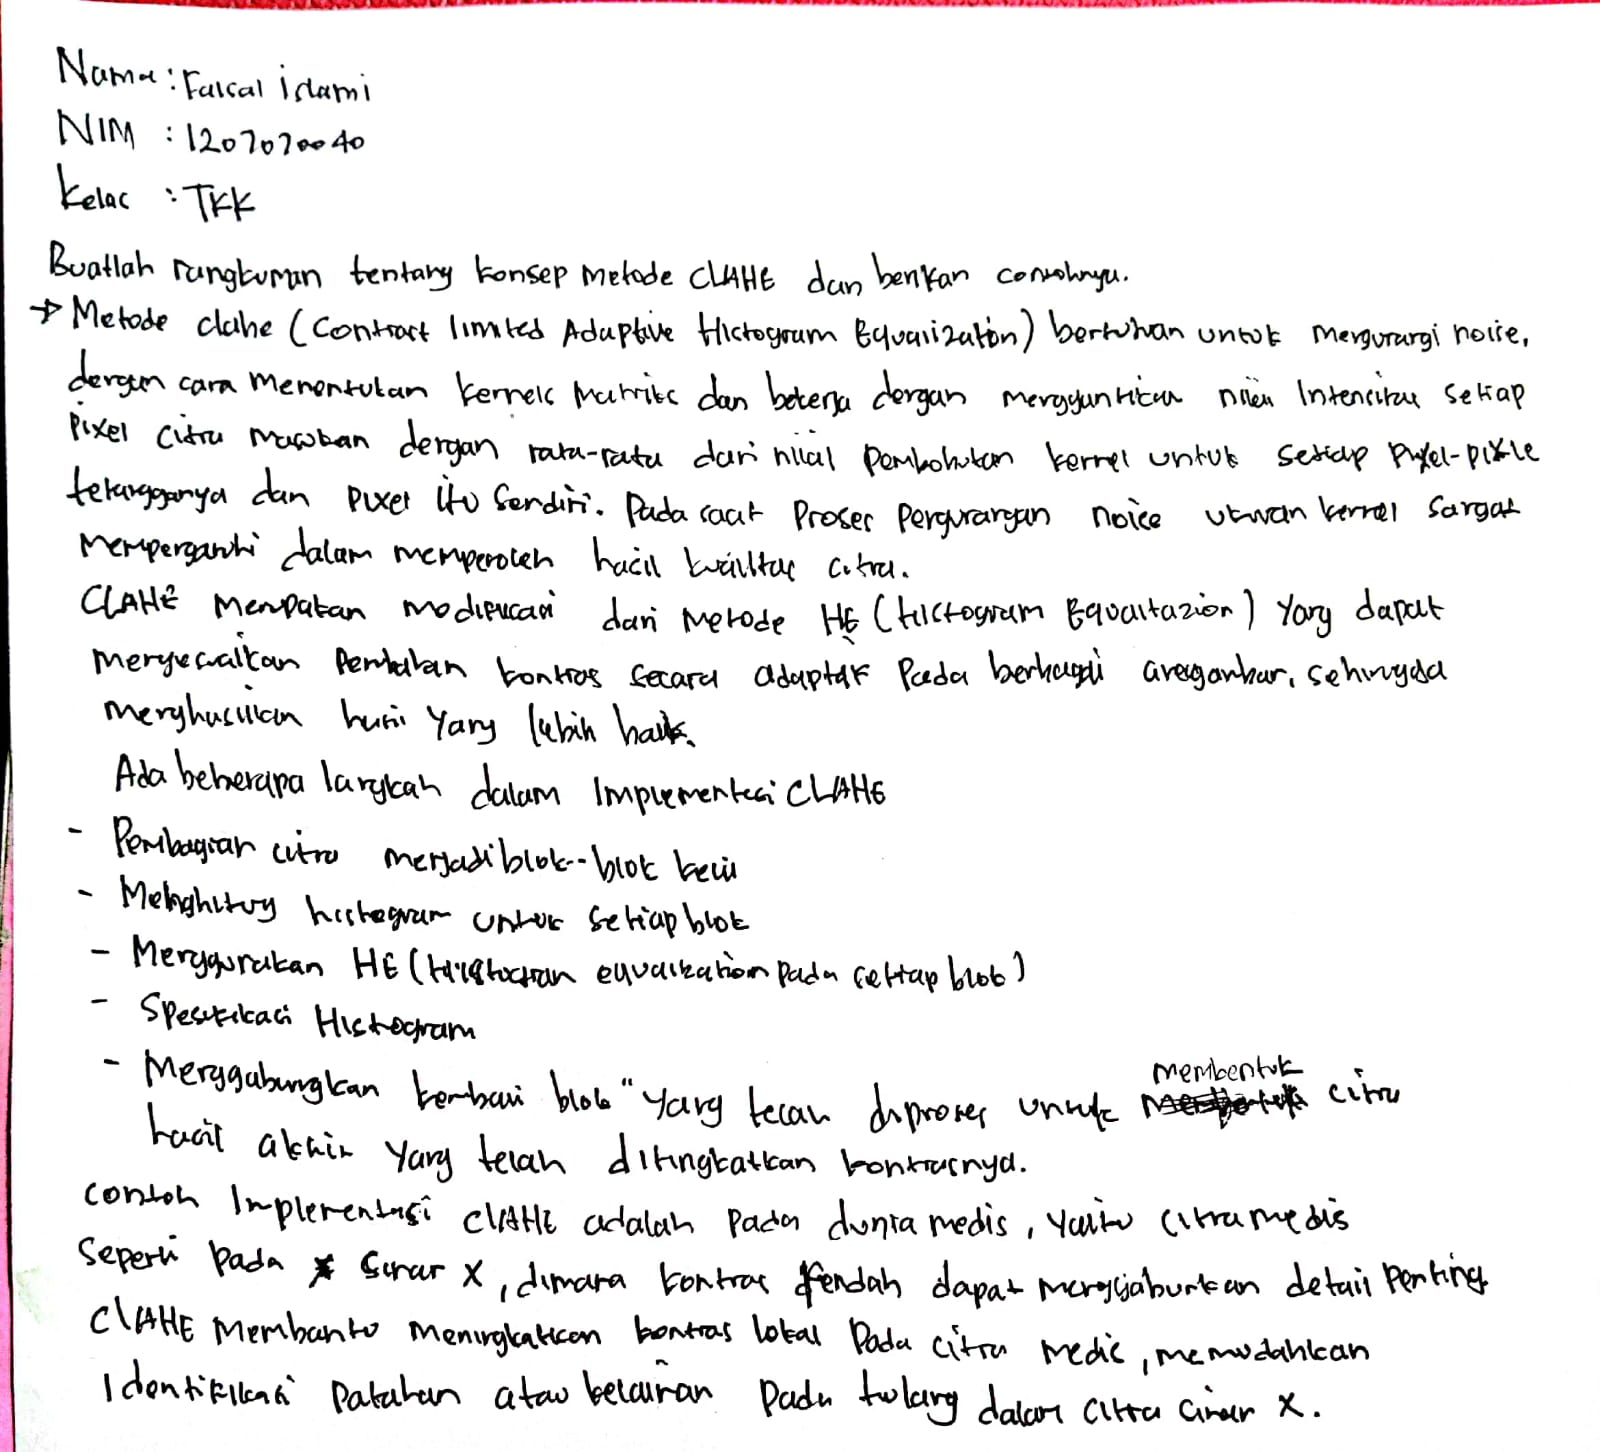 Nama : Faisal islami
NIM : 1207070040
Kelas : TKK
Buatlah rangkuman tentang konsep metode CLAHE dan berikan contohnya.
→ Metode clahe (Contrast limited Adaptive Histogram Equalization) bertujuan untuk mengurangi noise,
dengan cara menentukan kernels matriks dan bekerja dengan menggantikan nilai Intensitas setiap
pixel citra masukan dengan rata-rata dari nilai pembobotan kernel untuk setiap pixel-pixle
tetangganya dan pixel itu sendiri. Pada saat proses pengurangan noise ukuran kernel sangat
mempengaruhi dalam memperoleh hasil kualitas citra.
CLAHE merupakan modifikasi dari metode HE (Histogram Equalitazion) yang dapat
menyesuaikan kontras secara adaptif pada berbagai area gambar, sehingga
menghasilkan yang lebih baik.
Ada beberapa langkah dalam Implementasi CLAHE
- Pembagian citra menjadi blok--blok kecil
- Menghitung histogram untuk setiap blok
- Menggunakan HE (equalization pada setiap blok)
- Spesifikasi Histogram
- Menggabungkan kembali blok" yang telah diproses untuk membentuk citra
hasil akhir yang telah ditingkatkan kontrasnya.
contoh Implementasi CLAHE adalah pada dunia medis, yaitu citra medis
seperti pada sinar X, dimana kontras rendah dapat mengaburkan detail penting
CLAHE membantu meningkatkan kontras lokal pada citra medis, memudahkan
Identifikasi patahan atau kelainan pada tulang dalam citra sinar X.